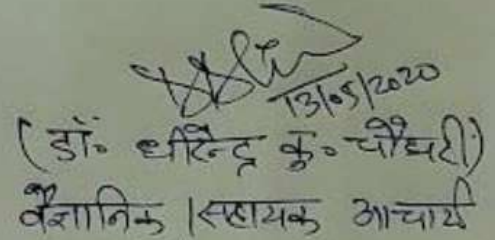 13/05/2020
(डॉ॰ धीरेन्द्र कु॰ चौधरी)
वैज्ञानिक /सहायक आचार्य